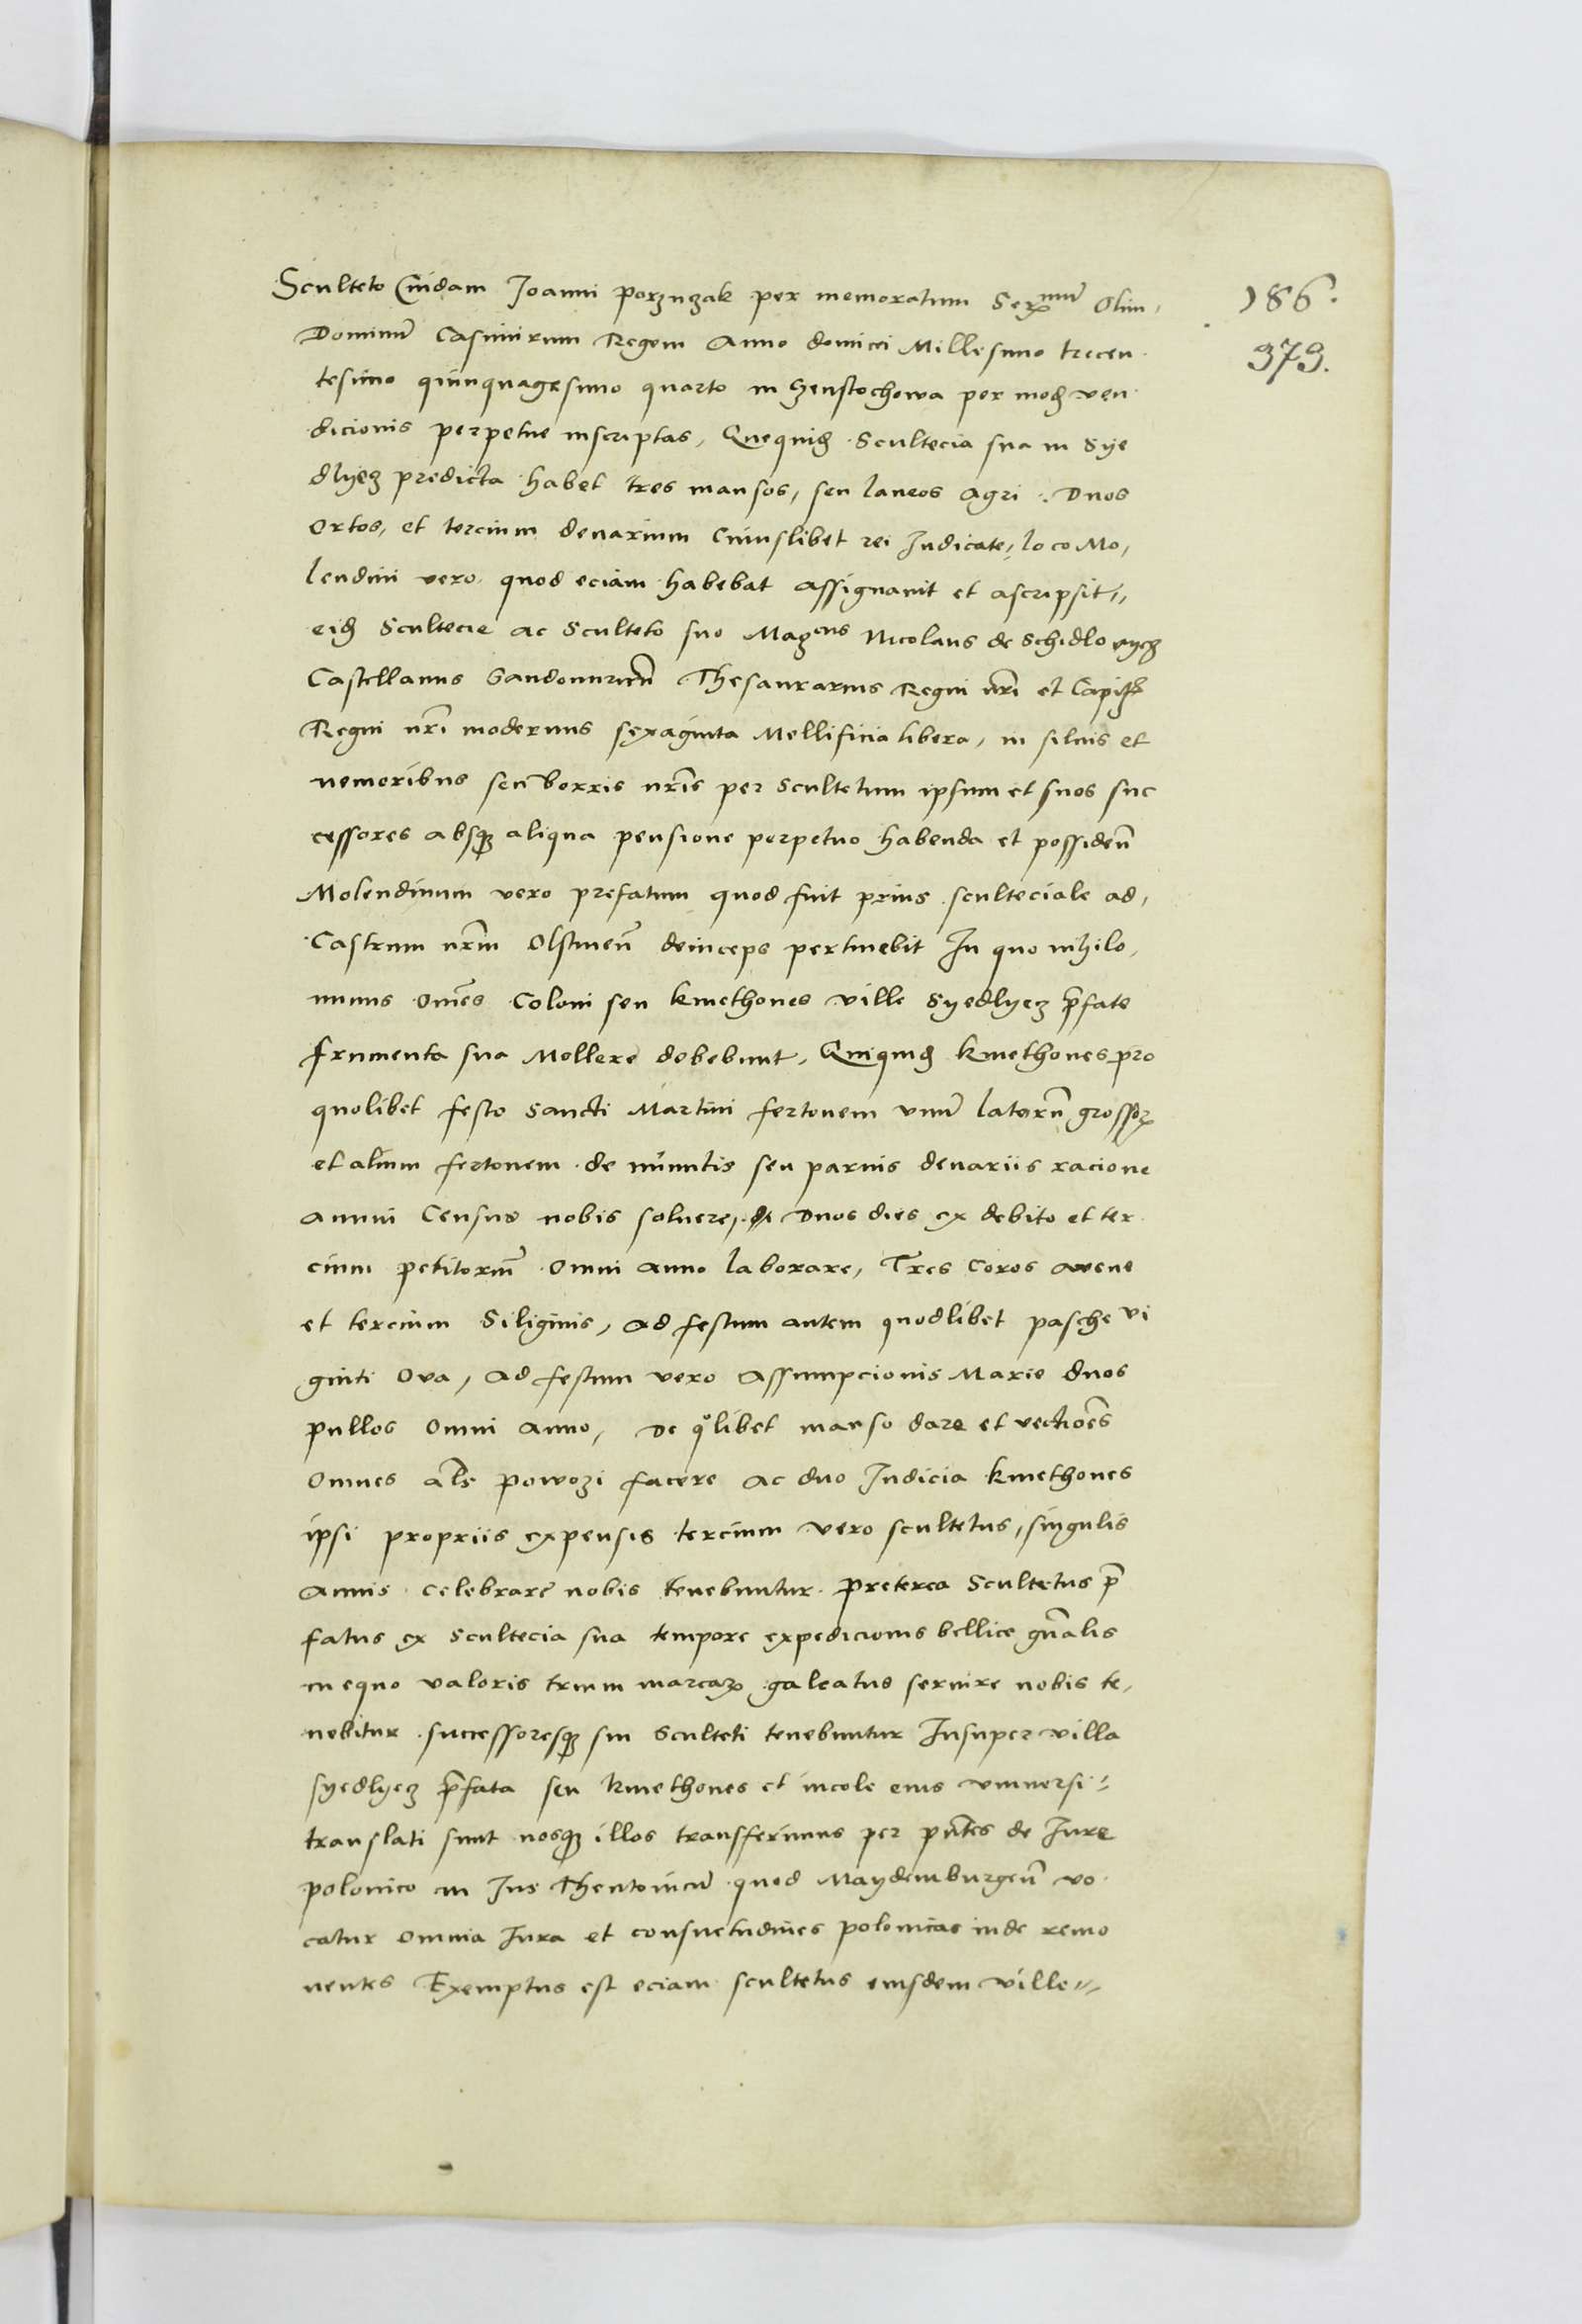 Sculteto Cuidam Joanni porzuzak per memoratum Serᵐᵘ̄ Olim
186.
Dominū Casimirum Regem Anno domini Millesimo trecen
373.
tesimo quinquagesimo quarto in Czenstochowa per modȝ ven
dicionis perpetue inscriptas, Quequidȝ Scultecia sua in Sye
dlyecz predicta habet tres mansos, seu laneos agri. Duos
Ortos, et tercium denarium Cuiuslibet rei Iudicate, loco Mo,
lendini vero quod eciam habebat assignauit et ascripsit
eidȝ Scultecie ac Sculteto suo Magᶜᵘˢ Nicolaus de Schidlowyecz
Castellanus Sandomirień Thesaurarius Regni nr̄i et Capitꝫ
Regni nr̄i modernus sexaginta Mellificia libera, in siluis et
nemoribus seu borris nr̄is per Scultetum ipsum et suos suc
cessores absqꝫ aliqua pensione perpetuo habenda et possideñ
Molendinum vero prefatum quod fuit prius sculteciale ad,
Castrum nr̄m Olstineñ deinceps pertinebit In quo nihilo,
minus om̄es Coloni seu kmethones ville Syedlyecz p̄fate
frumenta sua Mollere debebunt, Quiquidȝ kmethones pro
quolibet festo Sancti Martini fertonem vnū latorū grossoꝝ
et alium fertonem de minutis seu paruis denariis racione
annui Census nobis soluere, Duos dies ex debito et ter
cium petitoriū Omni anno laborare, Tres Coros avene
et tercium Siliginis, ad festum autem quodlibet pasche vi
ginti Ova, Ad festum vero Assumpcionis Marie duos
pullos Omni Anno, De qᵒlibet manso dare et vectiōes
Omnes al̄s powozi facere ac duo Iudicia kmethones
ipsi propriis expensis tercium vero scultetus, singulis
Annis celebrare nobis tenebuntur. Preterea Scultetus p̄
fatus ex Scultecia sua tempore expedicionis bellice gn̄alis
in equo valoris trium marcaꝝ galeatus seruire nobis te,
nebitur successoresqꝫ sui Sculteti tenebuntur Insuper villa
syedlyecz p̄fata seu kmethones et incole eius vniuersi
translati sunt nosqꝫ illos transferimus per pn̄tes de Iure
polonico in Ius Theutonicū quod Maydemburgeñ vo
catur Omnia Iura et consuetudines polonicas inde remo
uentes Exemptus est eciam scultetus eiusdem ville